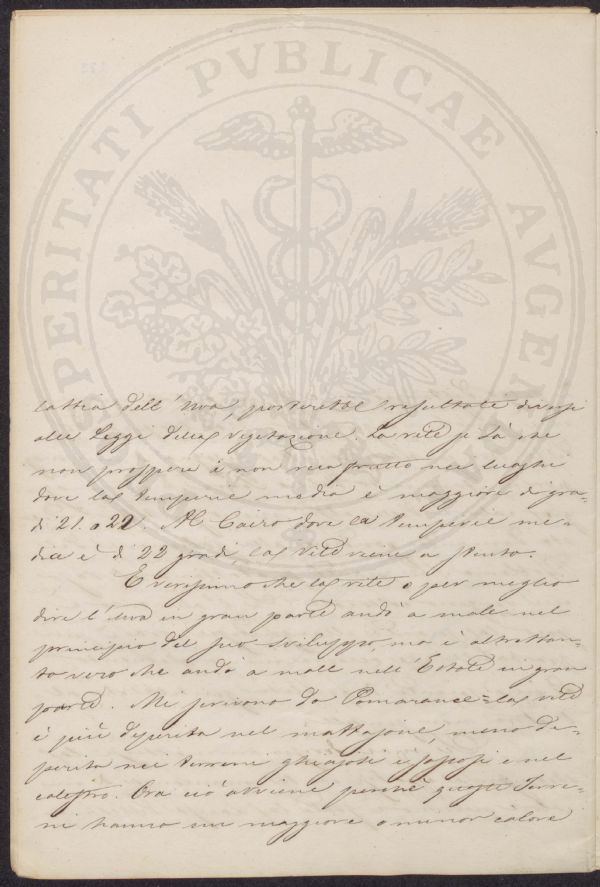 PROSPERITATI PVBLICAE AVGENDAE
lattia dell'Uva, porterebbe resultati diversi
alle Leggi della Vegetazione. La vite si sà che
non prospera e non reca frutto nei luoghi
dove la temperie media è maggiore di gra-
di 21. o 22. Al Cairo dove la temperie me-
dia è di 22 gradi, la Vite viene a stento.
È verissimo che la vite o per meglio
dire l'uva in gran parte andò a male nel
principio del suo sviluppo, ma è altrettan-
to vero che andò a male nell'Estate in gran
parte. Mi scrivono da Pomarance = la vite
è più deperita nel mattajone, meno de-
perita nei terreni ghiajosi e sassosi e nel
calestro. Ora ciò avviene perchè questi Terre-
ni hanno un maggiore o minor calore